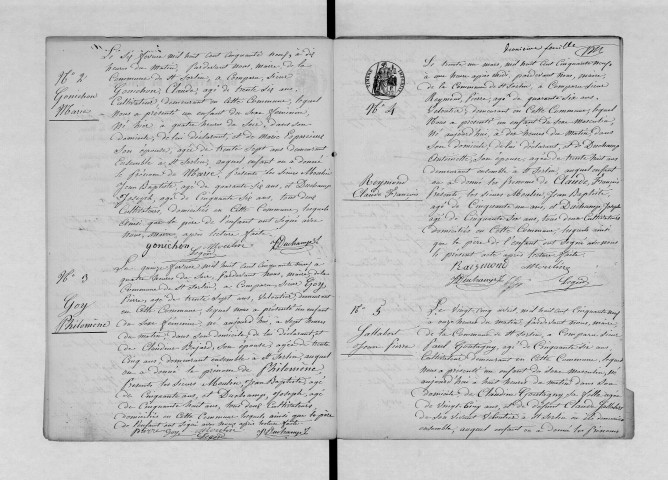 N° 2
Gonichon
Marie
Le Six février mil huit cent cinquante neuf, à dix
heures du matin, pardevant nous maire de la
Commune de St Sorlin, a comparu Sieur
Gonichon, Claude, agé de trente six ans,
Cultivateur, demeurant en cette Commune, lequel
nous a présenté un enfant du Sexe féminin,
né hier à quatre heures du Soir, dans son
domicile, de lui déclarant, et de Marie
Son épouse, agée de trente Sept ans demeurant
ensemble à St Sorlin, auquel enfant on a donné
le prénom de Marie, présents les Sieurs Moulin
Jean Baptiste, agé de quarante six ans, et Duchamp
Joseph, agé de Cinquante six ans, tous deux
Cultivateurs, domiciliés en Cette Commune, lesquels
ainsi que le père de l'enfant ont Signé avec
nous, Maire, après lecture faite.
gonichon Moulin Duchamp
N° 3
Goy
Philomène
Le quinze février mil huit cent cinquante neuf, à
quatre heures du Soir, Pardevant nous, Maire de la
Commune de St Sorlin, a comparu Sieur Goy
Pierre, agé de trente Sept ans, demeurant
en Cette Commune, lequel nous a présenté un enfant
du Sexe féminin, né aujourd'hui, à Sept heures
du matin, dans Son domicile, de lui déclarant, et
de Claudine Son épouse, agée de trente
Cinq ans, demeurant ensemble à St Sorlin, auquel
on a donné le prénom de Philomène
Présents les Sieurs Moulin, Jean Baptiste, agé
de Cinquante ans, et Duchamp, Joseph, agé
de Cinquante huit ans, tous deux Cultivateurs,
domiciliés en Cette Commune lesquels ainsi que le père
de l'enfant ont Signé avec nous après lecture faite
Pierre Goy Moulin Duchamp
feuille
N° 4
Reymond
Claude François
Le trente un mars, mil huit cent cinquante neuf
à une heure après midi, pardevant nous, maire,
de la Commune de St Sorlin, a comparu Sieur
Reymond Pierre, agé de quarante Six ans,
demeurant en Cette Commune, lequel
nous a présenté un enfant du Sexe Masculin,
Né aujourd'hui, à dix heures du Matin, dans
Son domicile, de lui déclarant, et de Duchamp
Son épouse, agée de trente huit ans
demeurant ensemble à St Sorlin, auquel enfant
on a donné les prénoms de Claude, François
présents les Sieurs Moulin, Jean Baptiste,
agé de Cinquante un ans, et Duchamp Joseph
agé de Cinquante Six ans, tous deux Cultivateurs
domiciliés en Cette Commune, lesquels ainsi
que le père de l'enfant ont Signé avec nous
le présent acte après lecture faite.
Raymond Moulin
Duchamp
N° 5
Jallabert
Jean Pierre
Le Vingt cinq avril, mil huit cent cinquante neuf
à onze heures du matin, pardevant nous, maire
de la Commune de St Sorlin, a Comparu Sieur
Paul Goutagny, agé de Cinquante Six ans,
Cultivateur demeurant en Cette Commune, lequel
nous a présenté un enfant du Sexe masculin, né
aujourd'hui à huit heures du matin dans Son
Domicile de Claudine Goutagny Sa fille, agée
de Vingt Cinq ans, et de défunt Claude Jallabert
ensemble, auquel enfant on a donné les prénoms